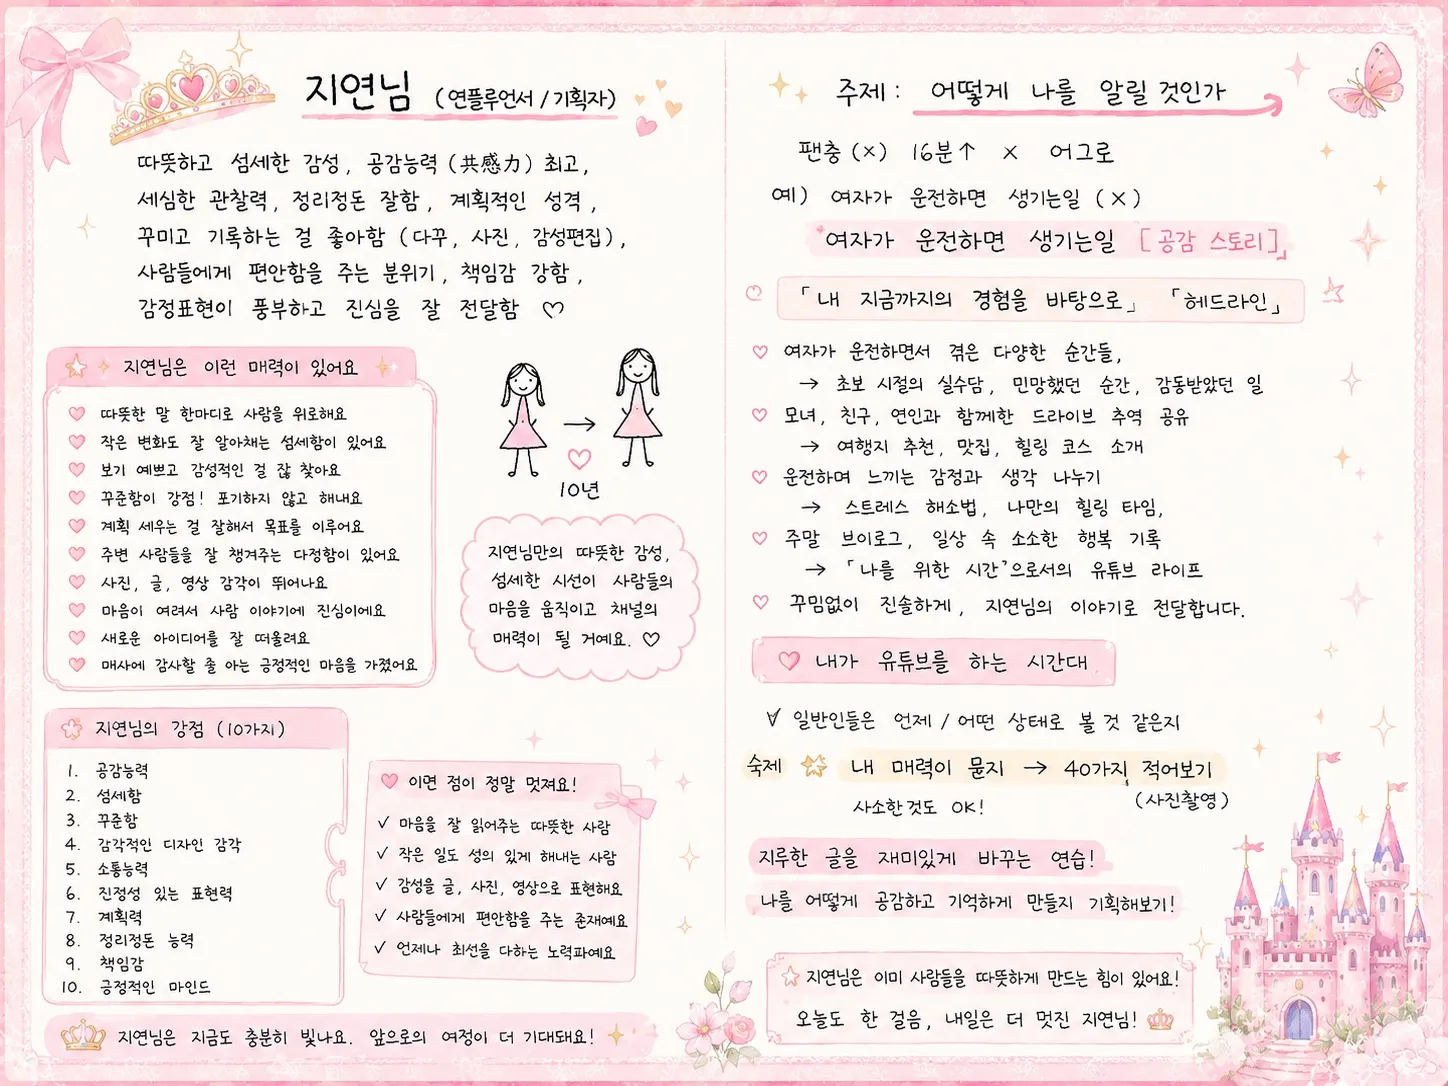 지연님 (연플루언서 / 기획자)
따뜻하고 섬세한 감성, 공감능력 (共感力) 최고,
세심한 관찰력, 정리정돈 잘함, 계획적인 성격,
꾸미고 기록하는 걸 좋아함 (다꾸, 사진, 감성편집),
사람들에게 편안함을 주는 분위기, 책임감 강함,
감정표현이 풍부하고 진심을 잘 전달함 ♡
지연님은 이런 매력이 있어요
따뜻한 말 한마디로 사람을 위로해요
작은 변화도 잘 알아채는 섬세함이 있어요
보기 예쁘고 감성적인 걸 잖 찾아요
꾸준함이 강점! 포기하지 않고 해내요
계획 세우는 걸 잘해서 목표를 이루어요
주변 사람들을 잘 챙겨주는 다정함이 있어요
사진, 글, 영상 감각이 뛰어나요
마음이 여려서 사람 이야기에 진심이에요
새로운 아이디어를 잘 떠올려요
매사에 감사할 줄 아는 긍정적인 마음을 가졌어요
→
10년
지연님만의 따뜻한 감성,
섬세한 시선이 사람들의
마음을 움직이고 채널의
매력이 될 거예요. ♡
지연님의 강점 (10가지)
1. 공감능력
2. 섬세함
3. 꾸준함
4. 감각적인 디자인 감각
5. 소통능력
6. 진정성 있는 표현력
7. 계획력
8. 정리정돈 능력
9. 책임감
10. 긍정적인 마인드
이면 점이 정말 멋져요!
✓ 마음을 잘 읽어주는 따뜻한 사람
✓ 작은 일도 성의 있게 해내는 사람
✓ 감성을 글, 사진, 영상으로 표현해요
✓ 사람들에게 편안함을 주는 존재예요
✓ 언제나 최선을 다하는 노력파예요
지연님은 지금도 충분히 빛나요. 앞으로의 여정이 더 기대돼요!
주제 : 어떻게 나를 알릴 것인가
팬층 (×) 16분↑ × 어그로
예) 여자가 운전하면 생기는일 (×)
여자가 운전하면 생기는일 [공감 스토리]
「내 지금까지의 경험을 바탕으로」 「헤드라인」
♡ 여자가 운전하면서 겪은 다양한 순간들,
→ 초보 시절의 실수담, 민망했던 순간, 감동받았던 일
♡ 모녀, 친구, 연인과 함께한 드라이브 추억 공유
→ 여행지 추천, 맛집, 힐링 코스 소개
♡ 운전하며 느끼는 감정과 생각 나누기
→ 스트레스 해소법, 나만의 힐링 타임,
♡ 주말 브이로그, 일상 속 소소한 행복 기록
→ 「나를 위한 시간」으로서의 유튜브 라이프
♡ 꾸밈없이 진솔하게, 지연님의 이야기로 전달합니다.
내가 유튜브를 하는 시간대
∀ 일반인들은 언제 / 어떤 상태로 볼 것 같은지
숙제 내 매력이 묻지 → 40가지 적어보기
사소한것도 OK! (사진촬영)
지루한 글을 재미있게 바꾸는 연습!
나를 어떻게 공감하고 기억하게 만들지 기획해보기!
지연님은 이미 사람들을 따뜻하게 만드는 힘이 있어요!
오늘도 한 걸음, 내일은 더 멋진 지연님!